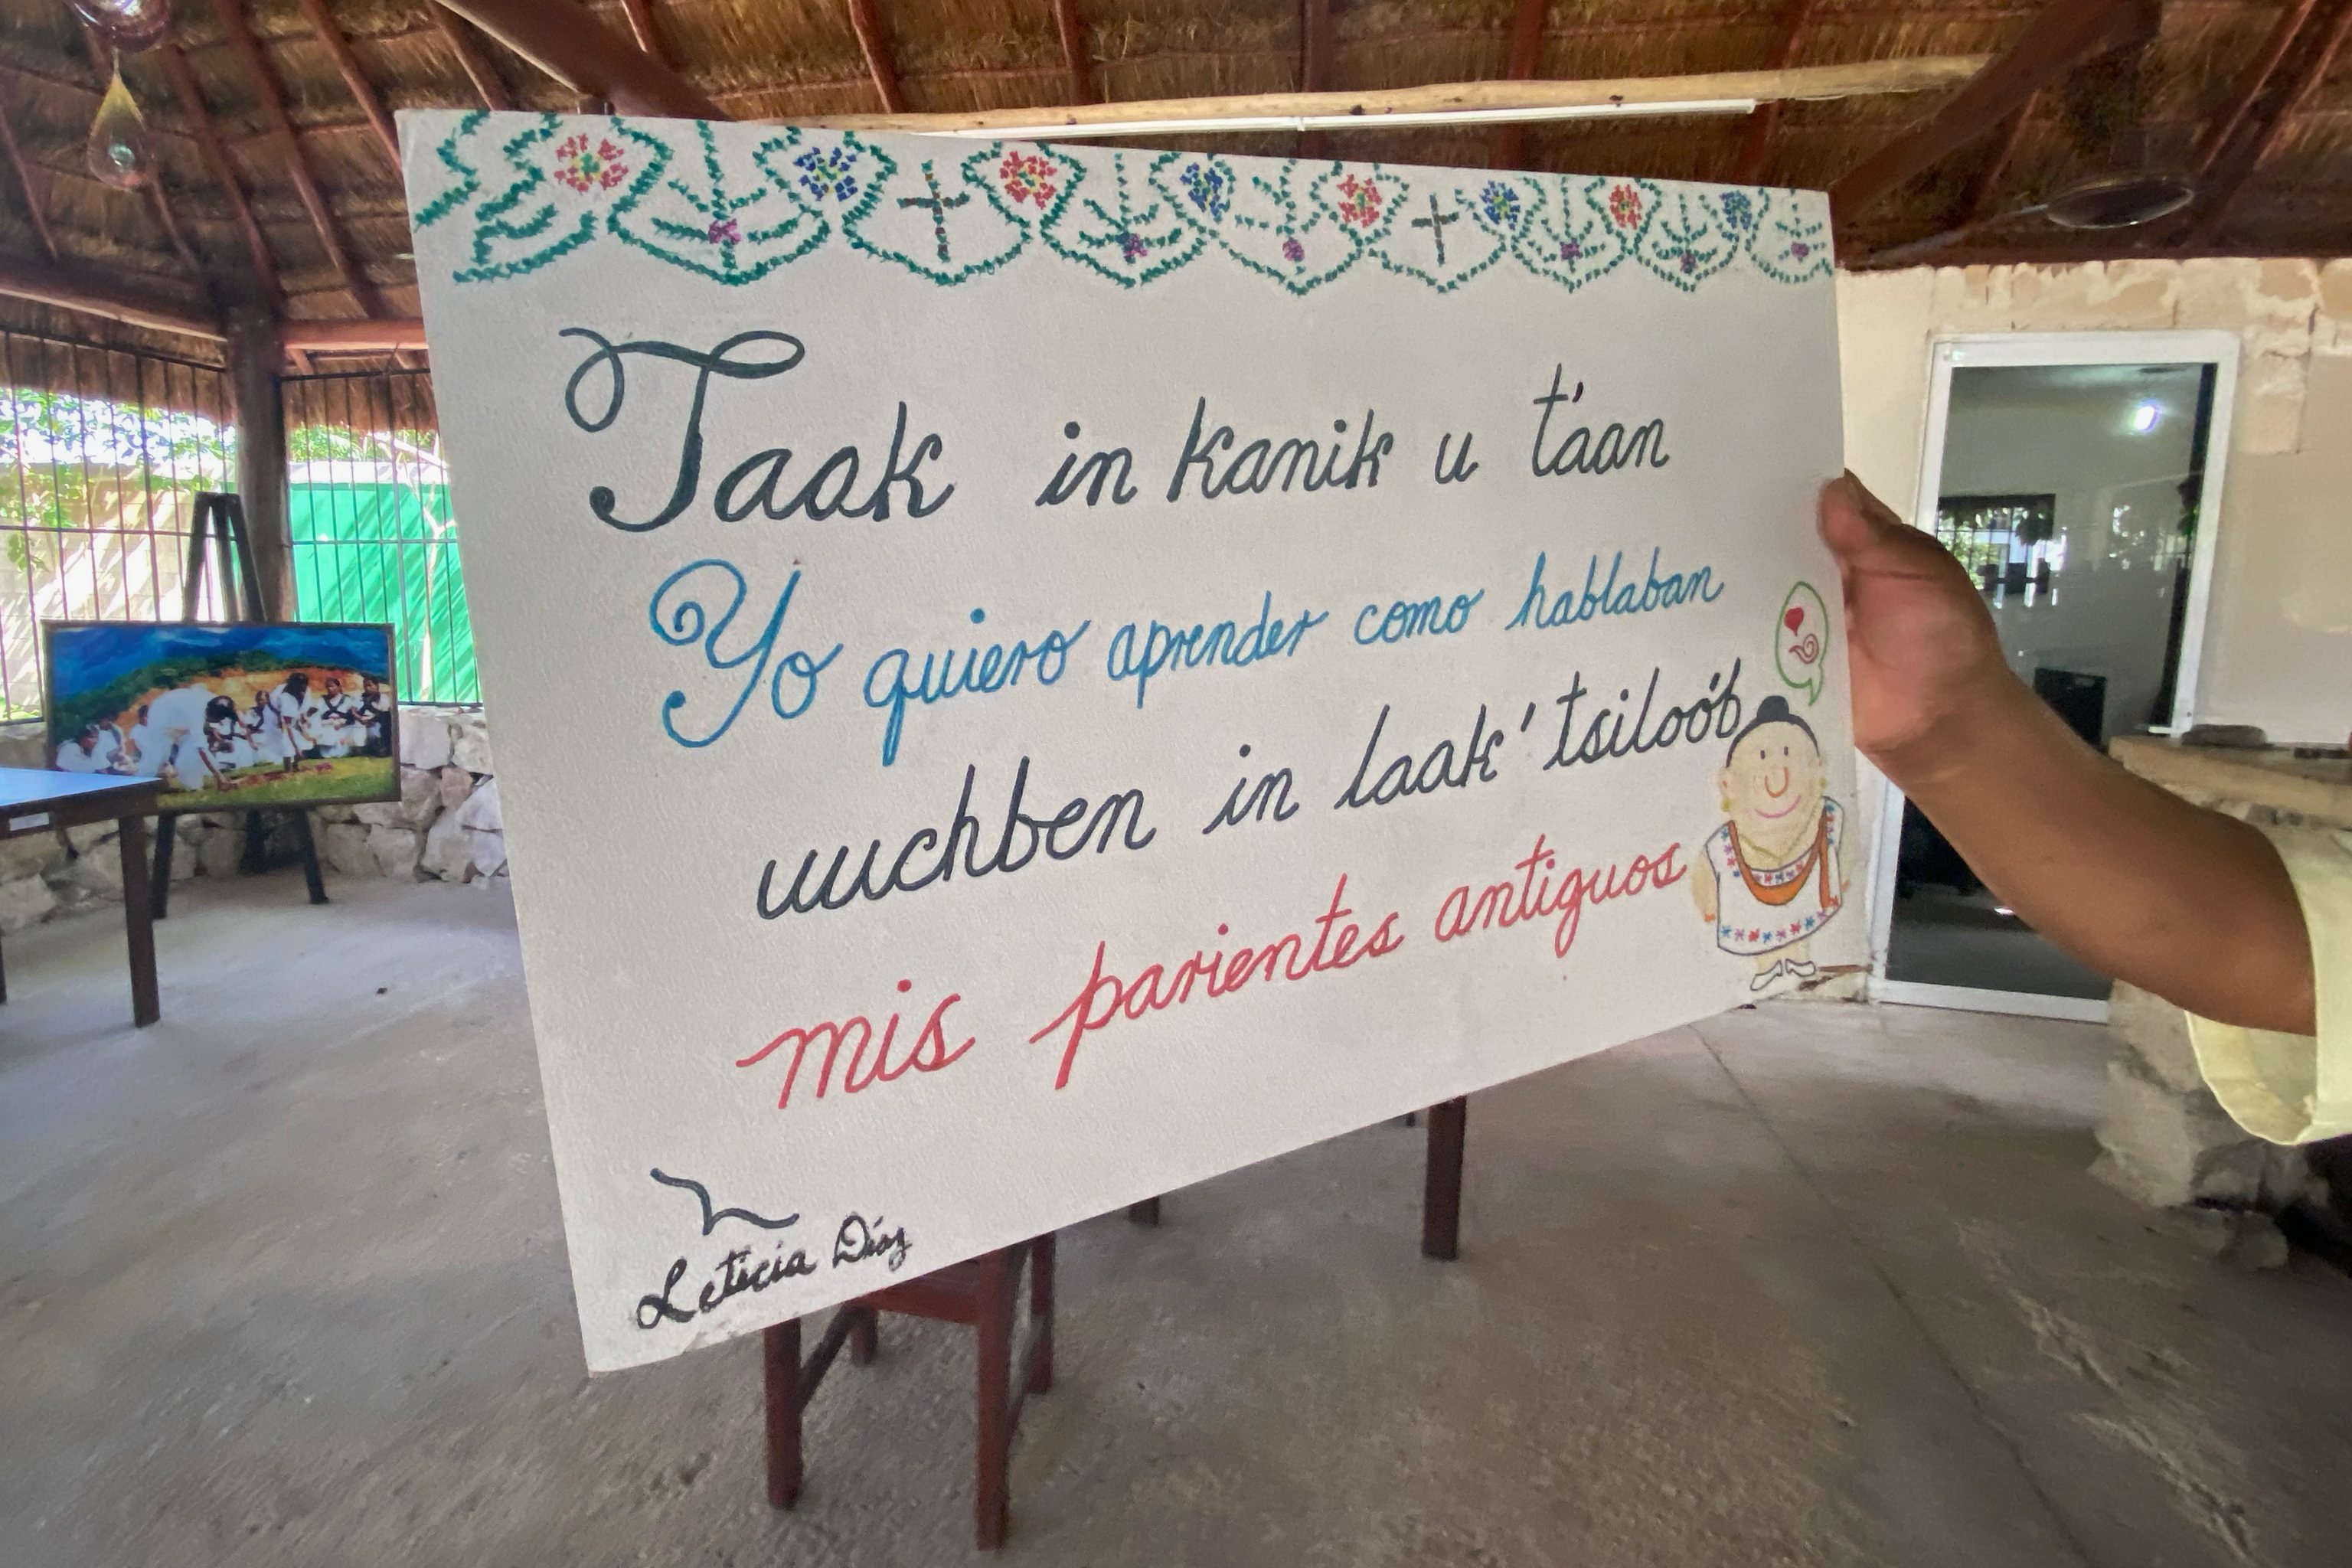 Taak in kanik u t'aan
Yo quiero aprender como hablaban
uuchben in laak' tsiloo'b
mis parientes antiguos
Leticia Díaz